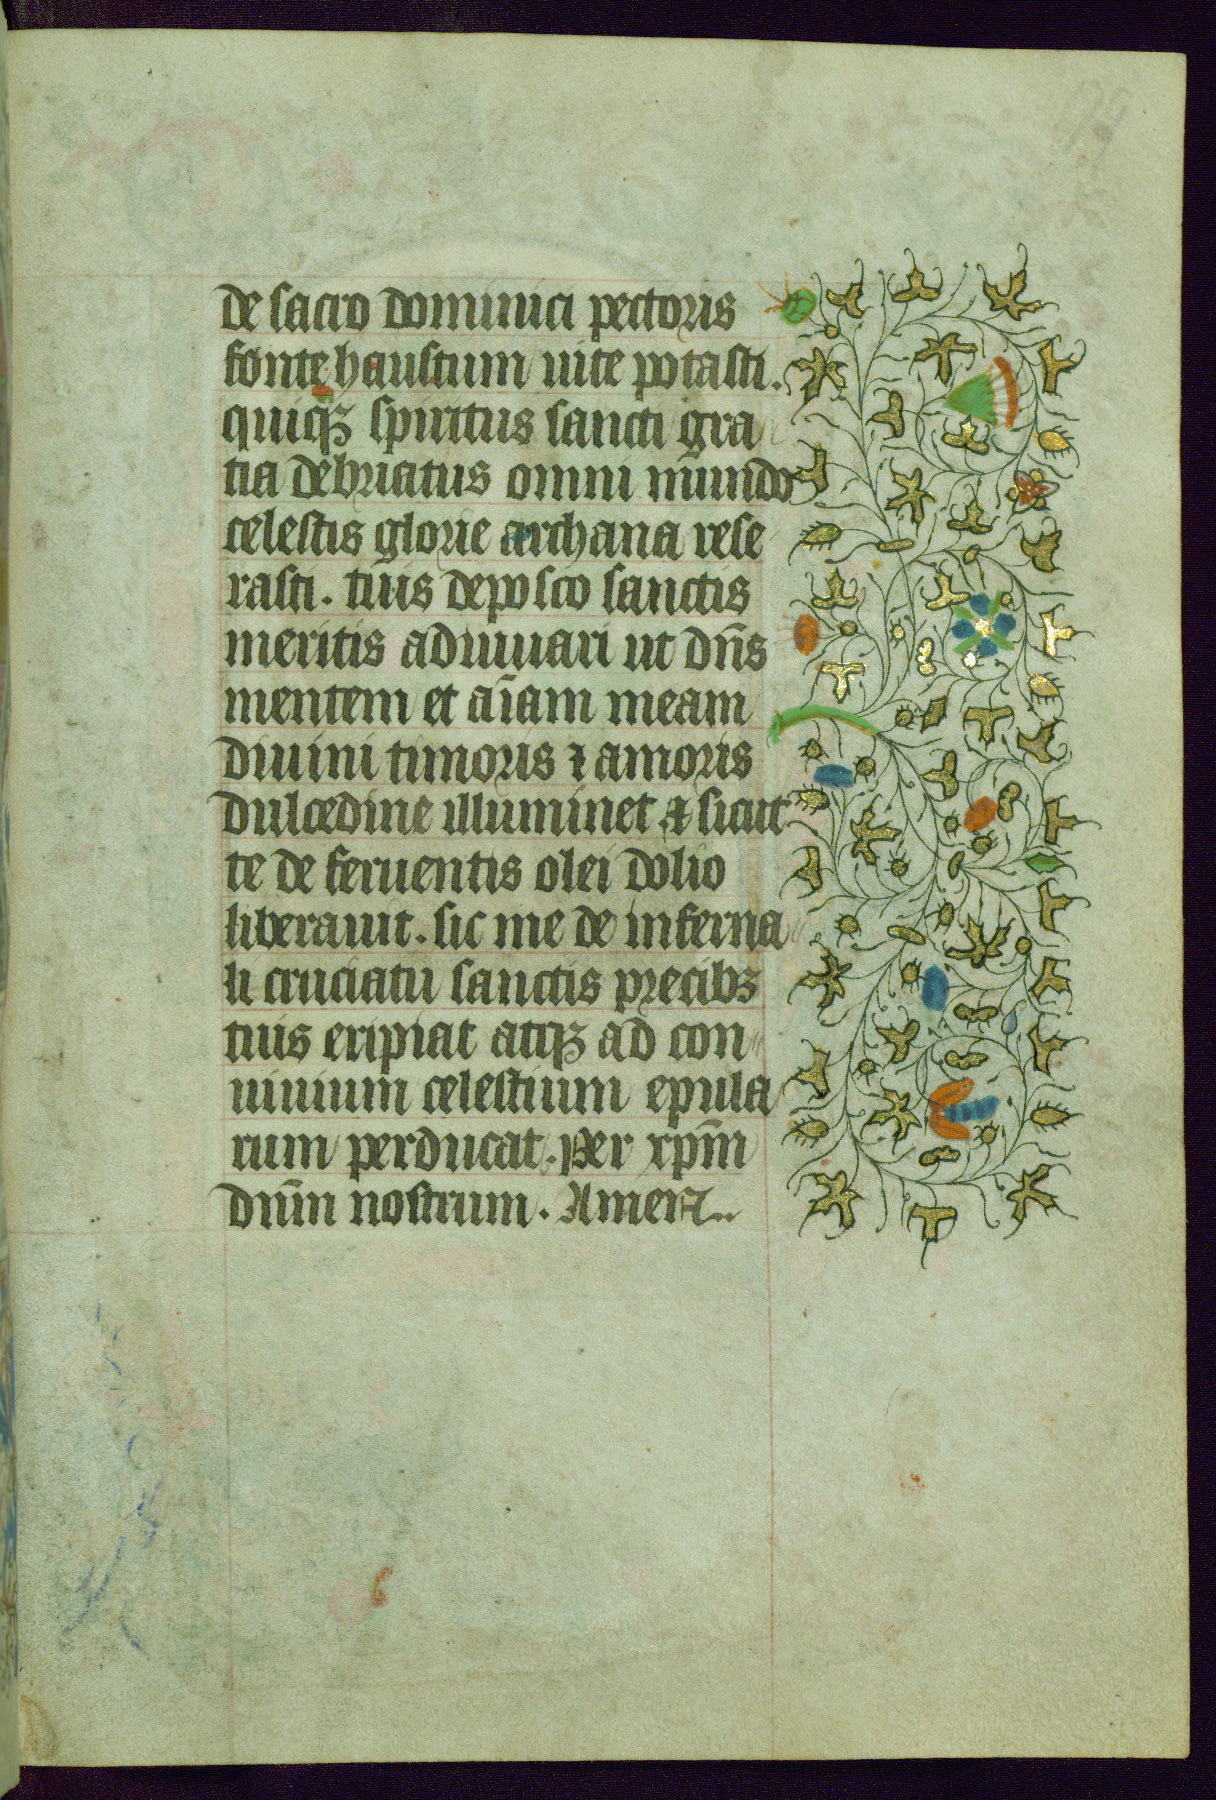 de sacro dominici pectoris
fonte haustum uite potasti.
quiqꝫ spiritus sancti gra
tia debriatus omni mundo
celestis glorie archana rese
rasti. tuis deposco sanctis
meritis adiuuari ut dn̄s
mentem et aīam meam
diuini timoris ⁊ amoris
dulcedine illuminet. et sicut
te de feruentis olei dolio
liberauit. sic me de inferna
li cruciatu sanctis precibꝫ
tuis eripiat atqꝫ ad con
uiuium celestium epula
rum perducat. Per xp̄m
dnm̄ nostrum. Amen..